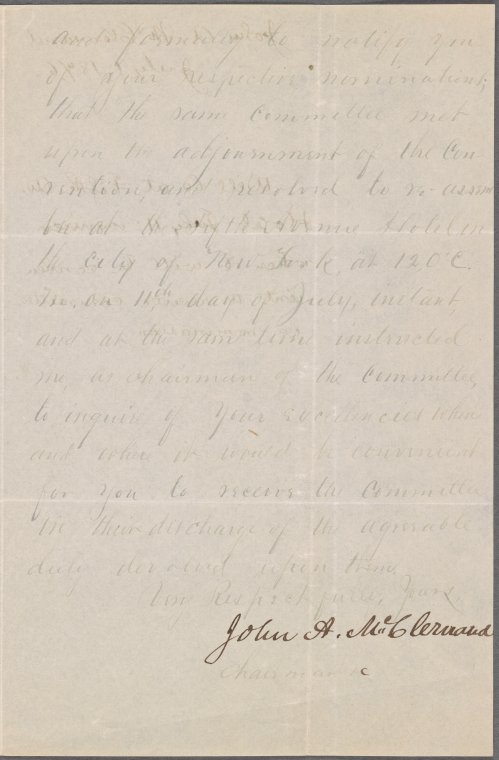 and formally to notify you
of your respective nominations;
that the same Committee met
upon the adjournment of the Con-
vention, and resolved to re-assem
ble at the Fifth Avenue Hotel in
the city of New York, at 12 O'C.
M. on 11th day of July, instant,
and at the same time instructed
me, as chairman of the Committee,
to inquire of Your Excellencies when
and where it would be convenient
for you to receive the Committee
in their discharge of the agreeable
duty devolved upon them.
Very Respectfully, Yours
John A. McClernand
Chairman &c